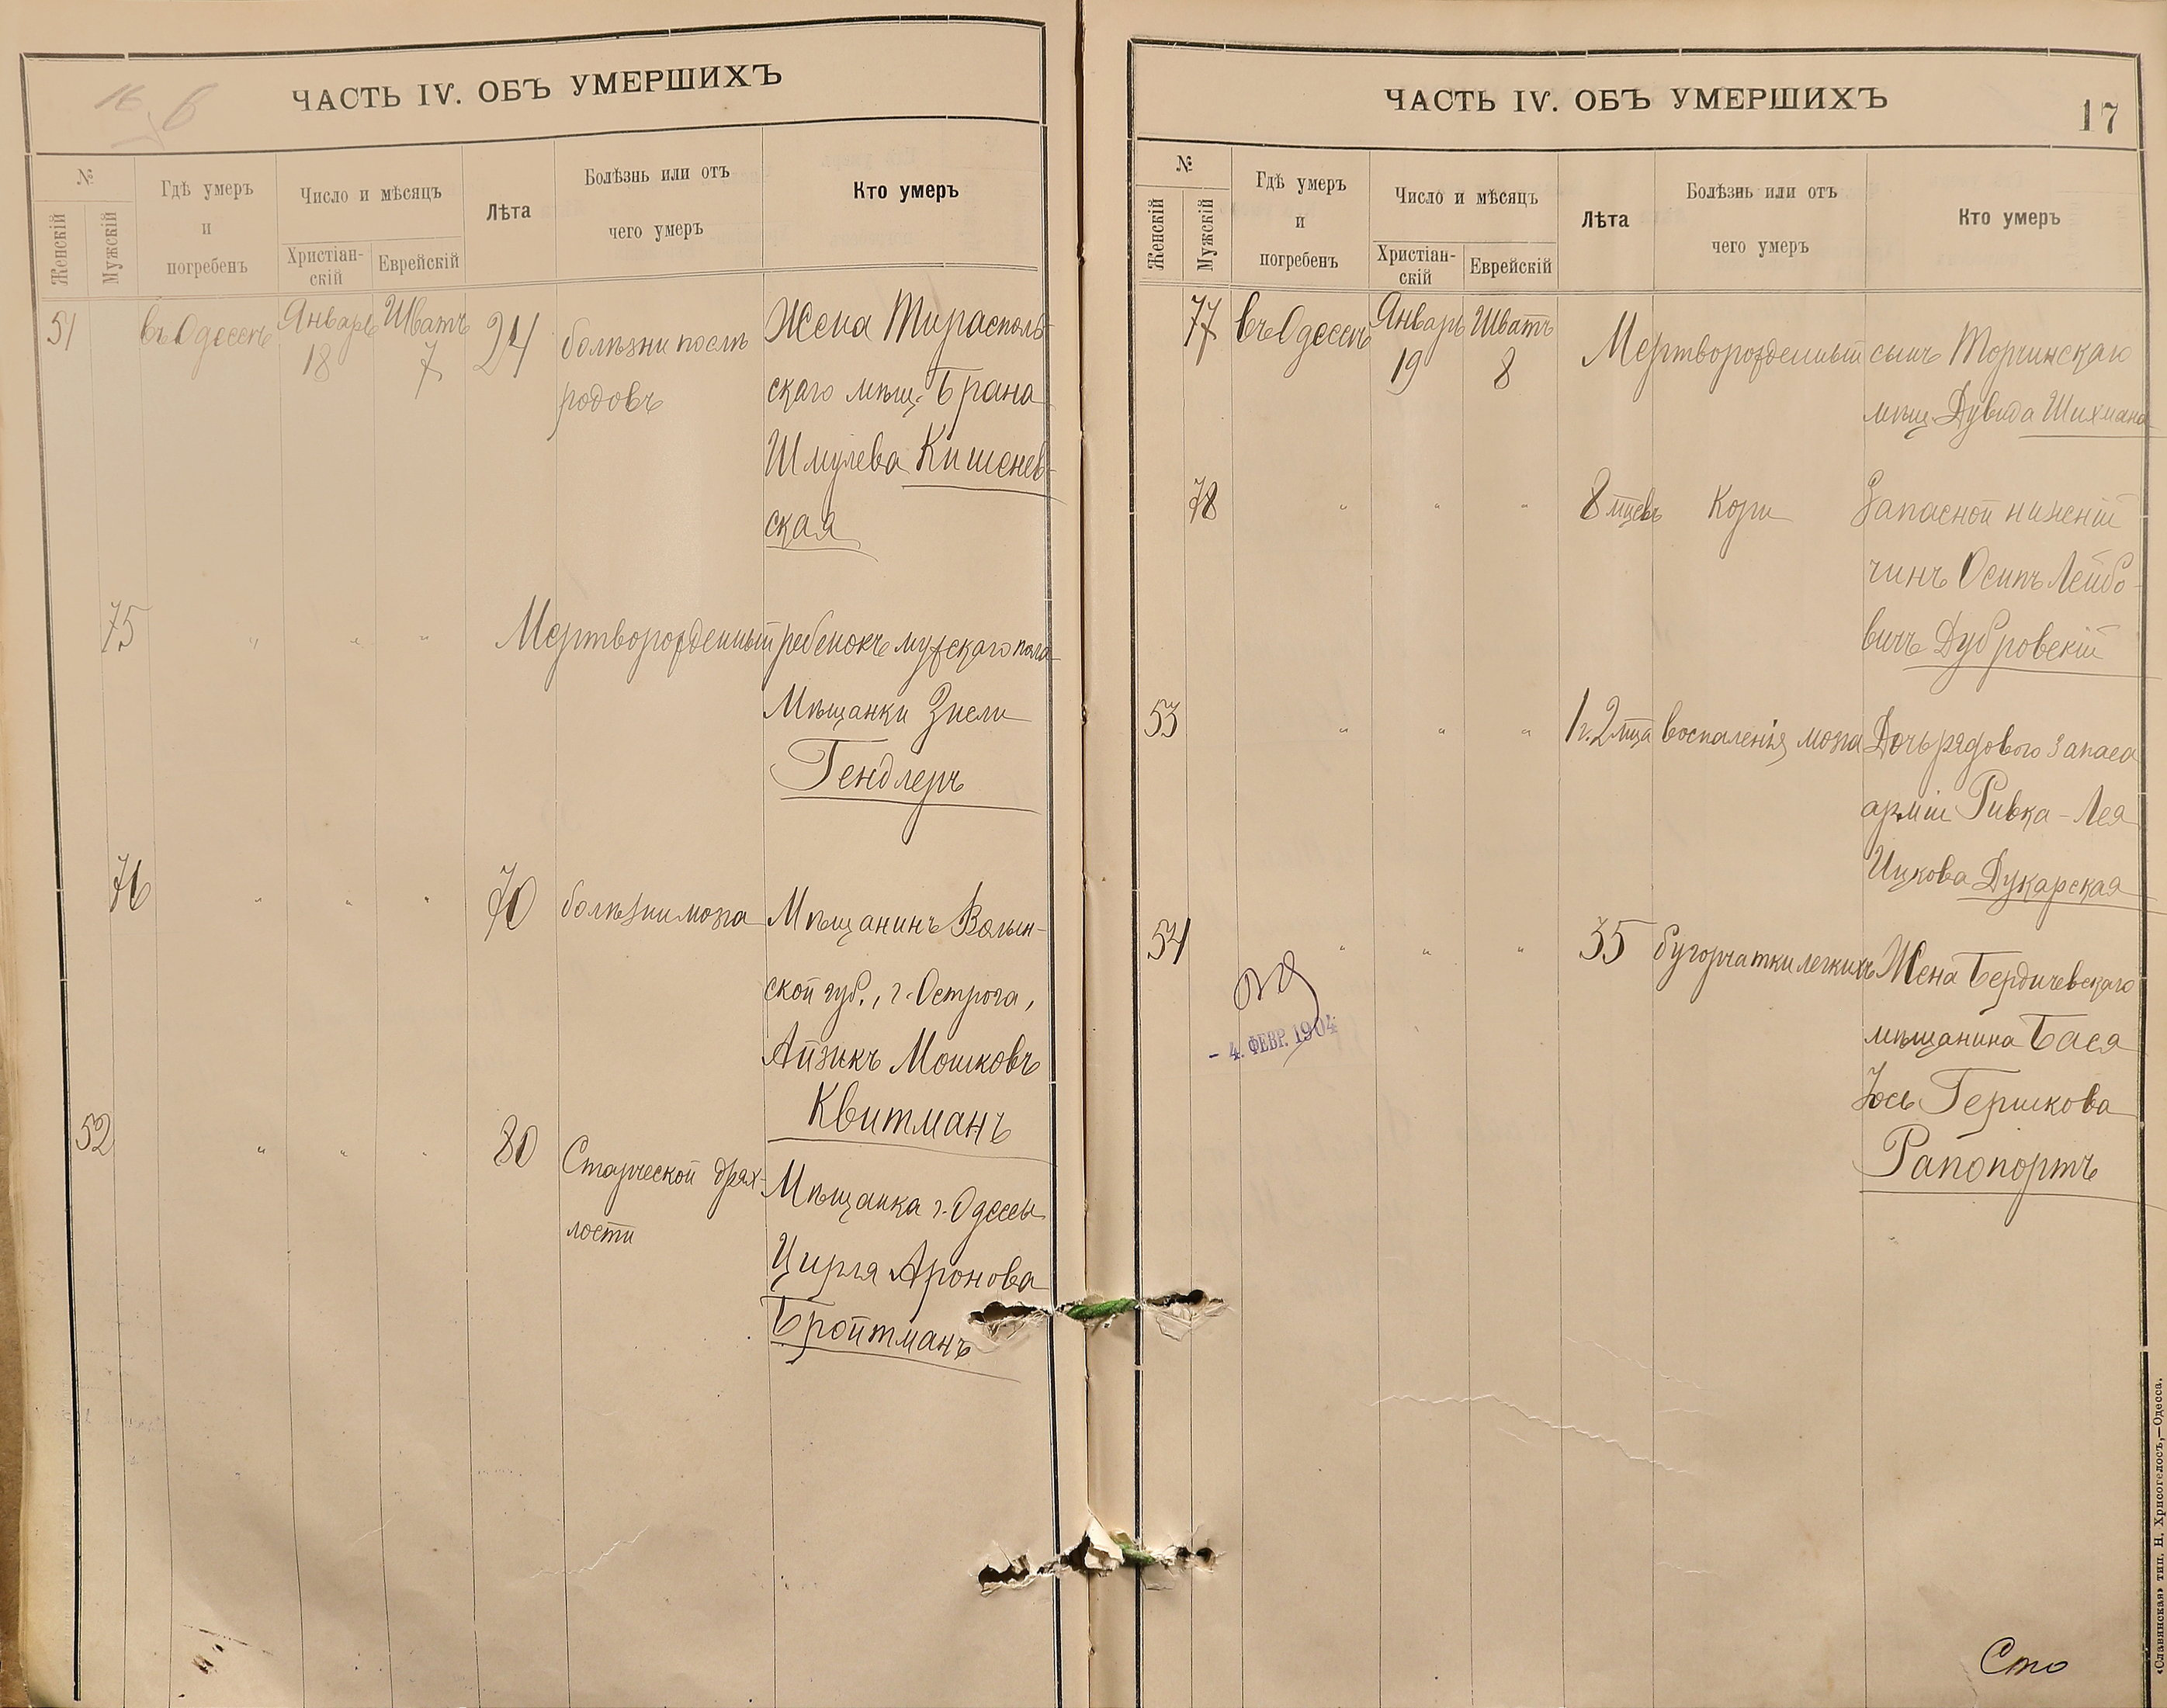 16
ЧАСТЬ IV. ОБЪ УМЕРШИХЪ
№
Женскій
Мужскій
Гдѣ умеръ
и
погребенъ
Число и мѣсяцъ
Христіан-
скій
Еврейскій
Лѣта
Болѣзнь или отъ
чего умеръ
Кто умеръ
51 въ Одессѣ Январь Шватъ 24 болѣзни послѣ Жена Тирасполь-
18 7 родовъ скаго мѣщ. Брана
Шмулева Кишенев-
ская
75 " " " Мертворожденный ребенокъ мужскаго пола
Мѣщанки Зисли
Гендлеръ
76 " " " 70 болѣзни мозга Мѣщанинъ Волын-
ской губ., г. Острога,
Айзикъ Мошковъ
Квитманъ
52 " " " 80 Старческой дрях-
лости Мѣщанка г. Одессы
Цирля Аронова
Бройтманъ
ЧАСТЬ IV. ОБЪ УМЕРШИХЪ
17
№
Женскій
Мужскій
Гдѣ умеръ
и
погребенъ
Число и мѣсяцъ
Христіан-
скій
Еврейскій
Лѣта
Болѣзнь или отъ
чего умеръ
Кто умеръ
77 въ Одессѣ Январь Шватъ Мертворожденный сынъ Торчинскаго
19 8 мѣщ Дувида Шихмана
78 " " " 8 мцевъ Кори Запасной нижній
чинъ Осипъ Лейбо-
вичъ Дубровскій
53 " " " 1 г. 2 мца воспаленія мозга Дочь рядового запаса
арміи Ривка-Лея
Ицкова Дукарская
54 " " " 35 бугорчатки легкихъ Жена Бердичевскаго
мѣщанина Бася
Гершкова
Рапопортъ
- 4. ФЕВР. 1904
Сто
«Славянская» тип. Н. Хрисогелосъ,—Одесса.